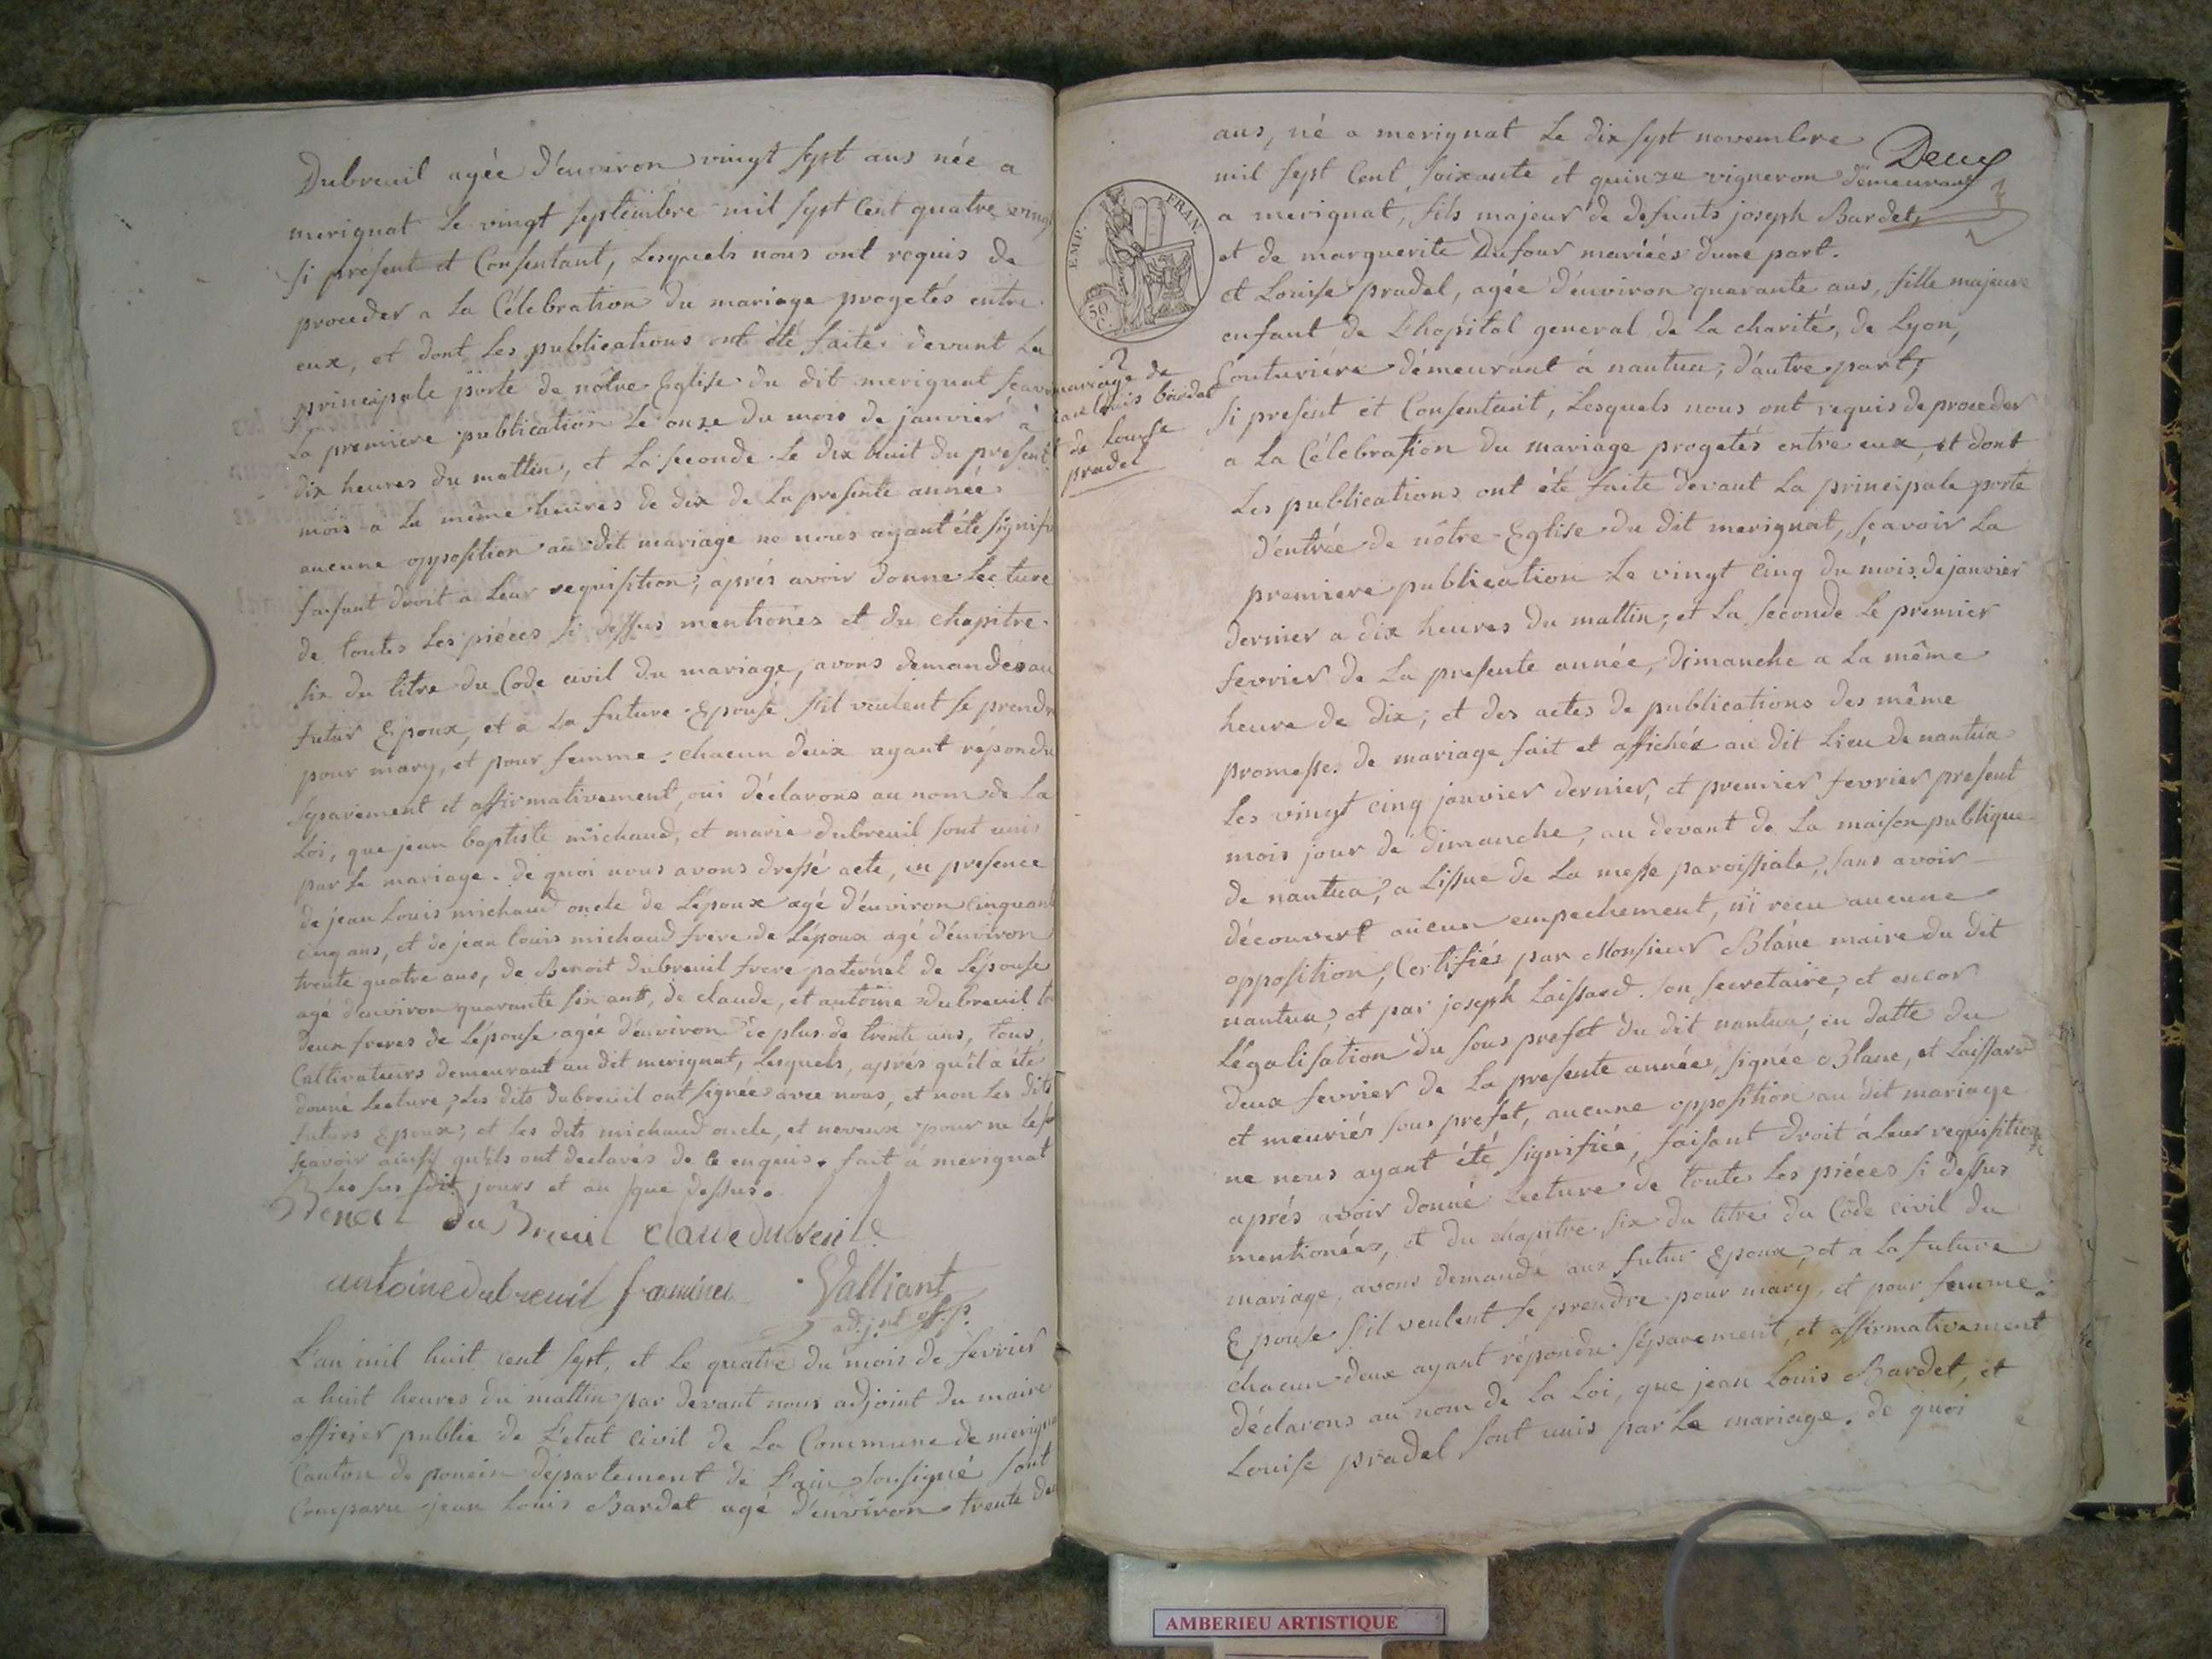 Dubreuil agée d'environ vingt sept ans née a
merignat le vingt septembre mil sept cent quatre vingt
si present et Consentant, Lesquels nous ont requis de
proceder a la Célebration du mariage progetés entre
eux, et dont Les publications ont été faites devant La
principale porte de nôtre Eglise du dit merignat
La premiere publication Le onze du mois de janvier à
dix heures du mattin, et La seconde Le dix huit du present
mois a La même heures de dix de La presente année
aucune opposition au dit mariage ne nous ayant été signifié
faisant droit a Leur requisition, aprés avoir donne Lecture
de toutes Les piéces si dessus mentionés et du chapitre
six du titre du Code civil du mariage, avons demandés au
futur Epoux, et a La future Epouse s'il veulent se prendre
pour mary, et pour femme. chacun deux ayant répondu
séparement et affirmativement, oui déclarons au nom de La
Loi, que jean baptiste michaud, et marie dubreuil sont unis
par Le mariage. de quoi nous avons dressé acte, en presence
de jean Louis michaud oncle de L'époux agé d'environ cinquante
cinq ans, et de jean Louis michaud frere de L'époux agé d'environ
trente quatre ans, de Benoit dubreuil frere paternel de L'épouse
agé d'environ quarante six ans, de claude, et antoine dubreuil
deux freres de L'épouse agée d'environ de plus de trente ans, tous
Cultivateurs demeurant au dit merignat, Lesquels, aprés qu'il a été
donné Lecture, Les dits dubreuil ont signées avec nous, et non Les dits
futurs Epoux, et Les dits michaud oncle, et neveux pour ne Le
sçavoir ainsi qu'ils ont declarés de ce enquis. fait a merignat
Les sus dit jours et an que dessus.
Benoi du Breuil claude dubreuil
antoine dubreuil Valliant
adjnt
L'an mil huit cent sept, et Le quatre du mois de fevrier
a huit heures du mattin par devant nous adjoint du maire
officier public de L'etat civil de La Commune de merignat
Canton de poncin département de L'ain sousigné sont
Comparu jean Louis Bardet agé d'environ trente deux
ans, né a merignat Le dix sept novembre
Deux
mil sept Cent soixante et quinze vigneron demeurant
a merignat, fils majeur de defunts joseph Bardet,
et de marguerite Dufour mariéés dune part.
et Louise pradel, agée d'environ quarante ans, fille majeure
enfant de L'hopital general de La charité, de Lyon,
Couturiére démeurant á nantua, d'autre part,
si present et Consentant, Lesquels nous ont requis de proceder
a La Célebration du mariage progetés entre eux, et dont
Les publications ont été faite devant La principale porte
d'entrée de nôtre Eglise du dit merignat, sçavoir La
premiere publication Le vingt cinq du mois de janvier
dernier a dix heures du mattin, et La seconde Le premier
fevrier de La presente année, dimanche a La même
heure de dix; et des actes de publications des même
promesses de mariage fait et affichés au dit Lieu de nantua
Les vingt cinq janvier dernier, et premier fevrier present
mois jour de dimanche, au devant de La maison publique
de nantua, a Lissue de La messe paroissiale, sans avoir
découvert aucun empechement, ni recu aucune
opposition, Certifiés par Monsieur Blanc maire du dit
nantua, et par joseph Laissard son secretaire, et encor
Légalisation du sous prefet du dit nantua, en datte du
deux fevrier de La presente année, signée Blanc, et Laissard
et meuriés sous prefet, aucune opposition au dit mariage
ne nous ayant été signifiée, faisant droit á leur requisition
aprés avoir donné Lecture de toute Les piéces si dessus
mentionées, et du chapitre six du titre du Code civil du
mariage, avons demandé aux futur Epoux, et a La future
Epouse s'il veulent se prendre pour mary, et pour femme.
chacun deux ayant répondu séparement, et affirmativement
déclarons au nom de La Loi, que jean Louis Bardet, et
Louise pradel sont unis par Le mariage. de quoi
EMP. FRAN.
50
C.
2
mariage de
jean Louis bardet
et de Louise
pradel
AMBERIEU ARTISTIQUE